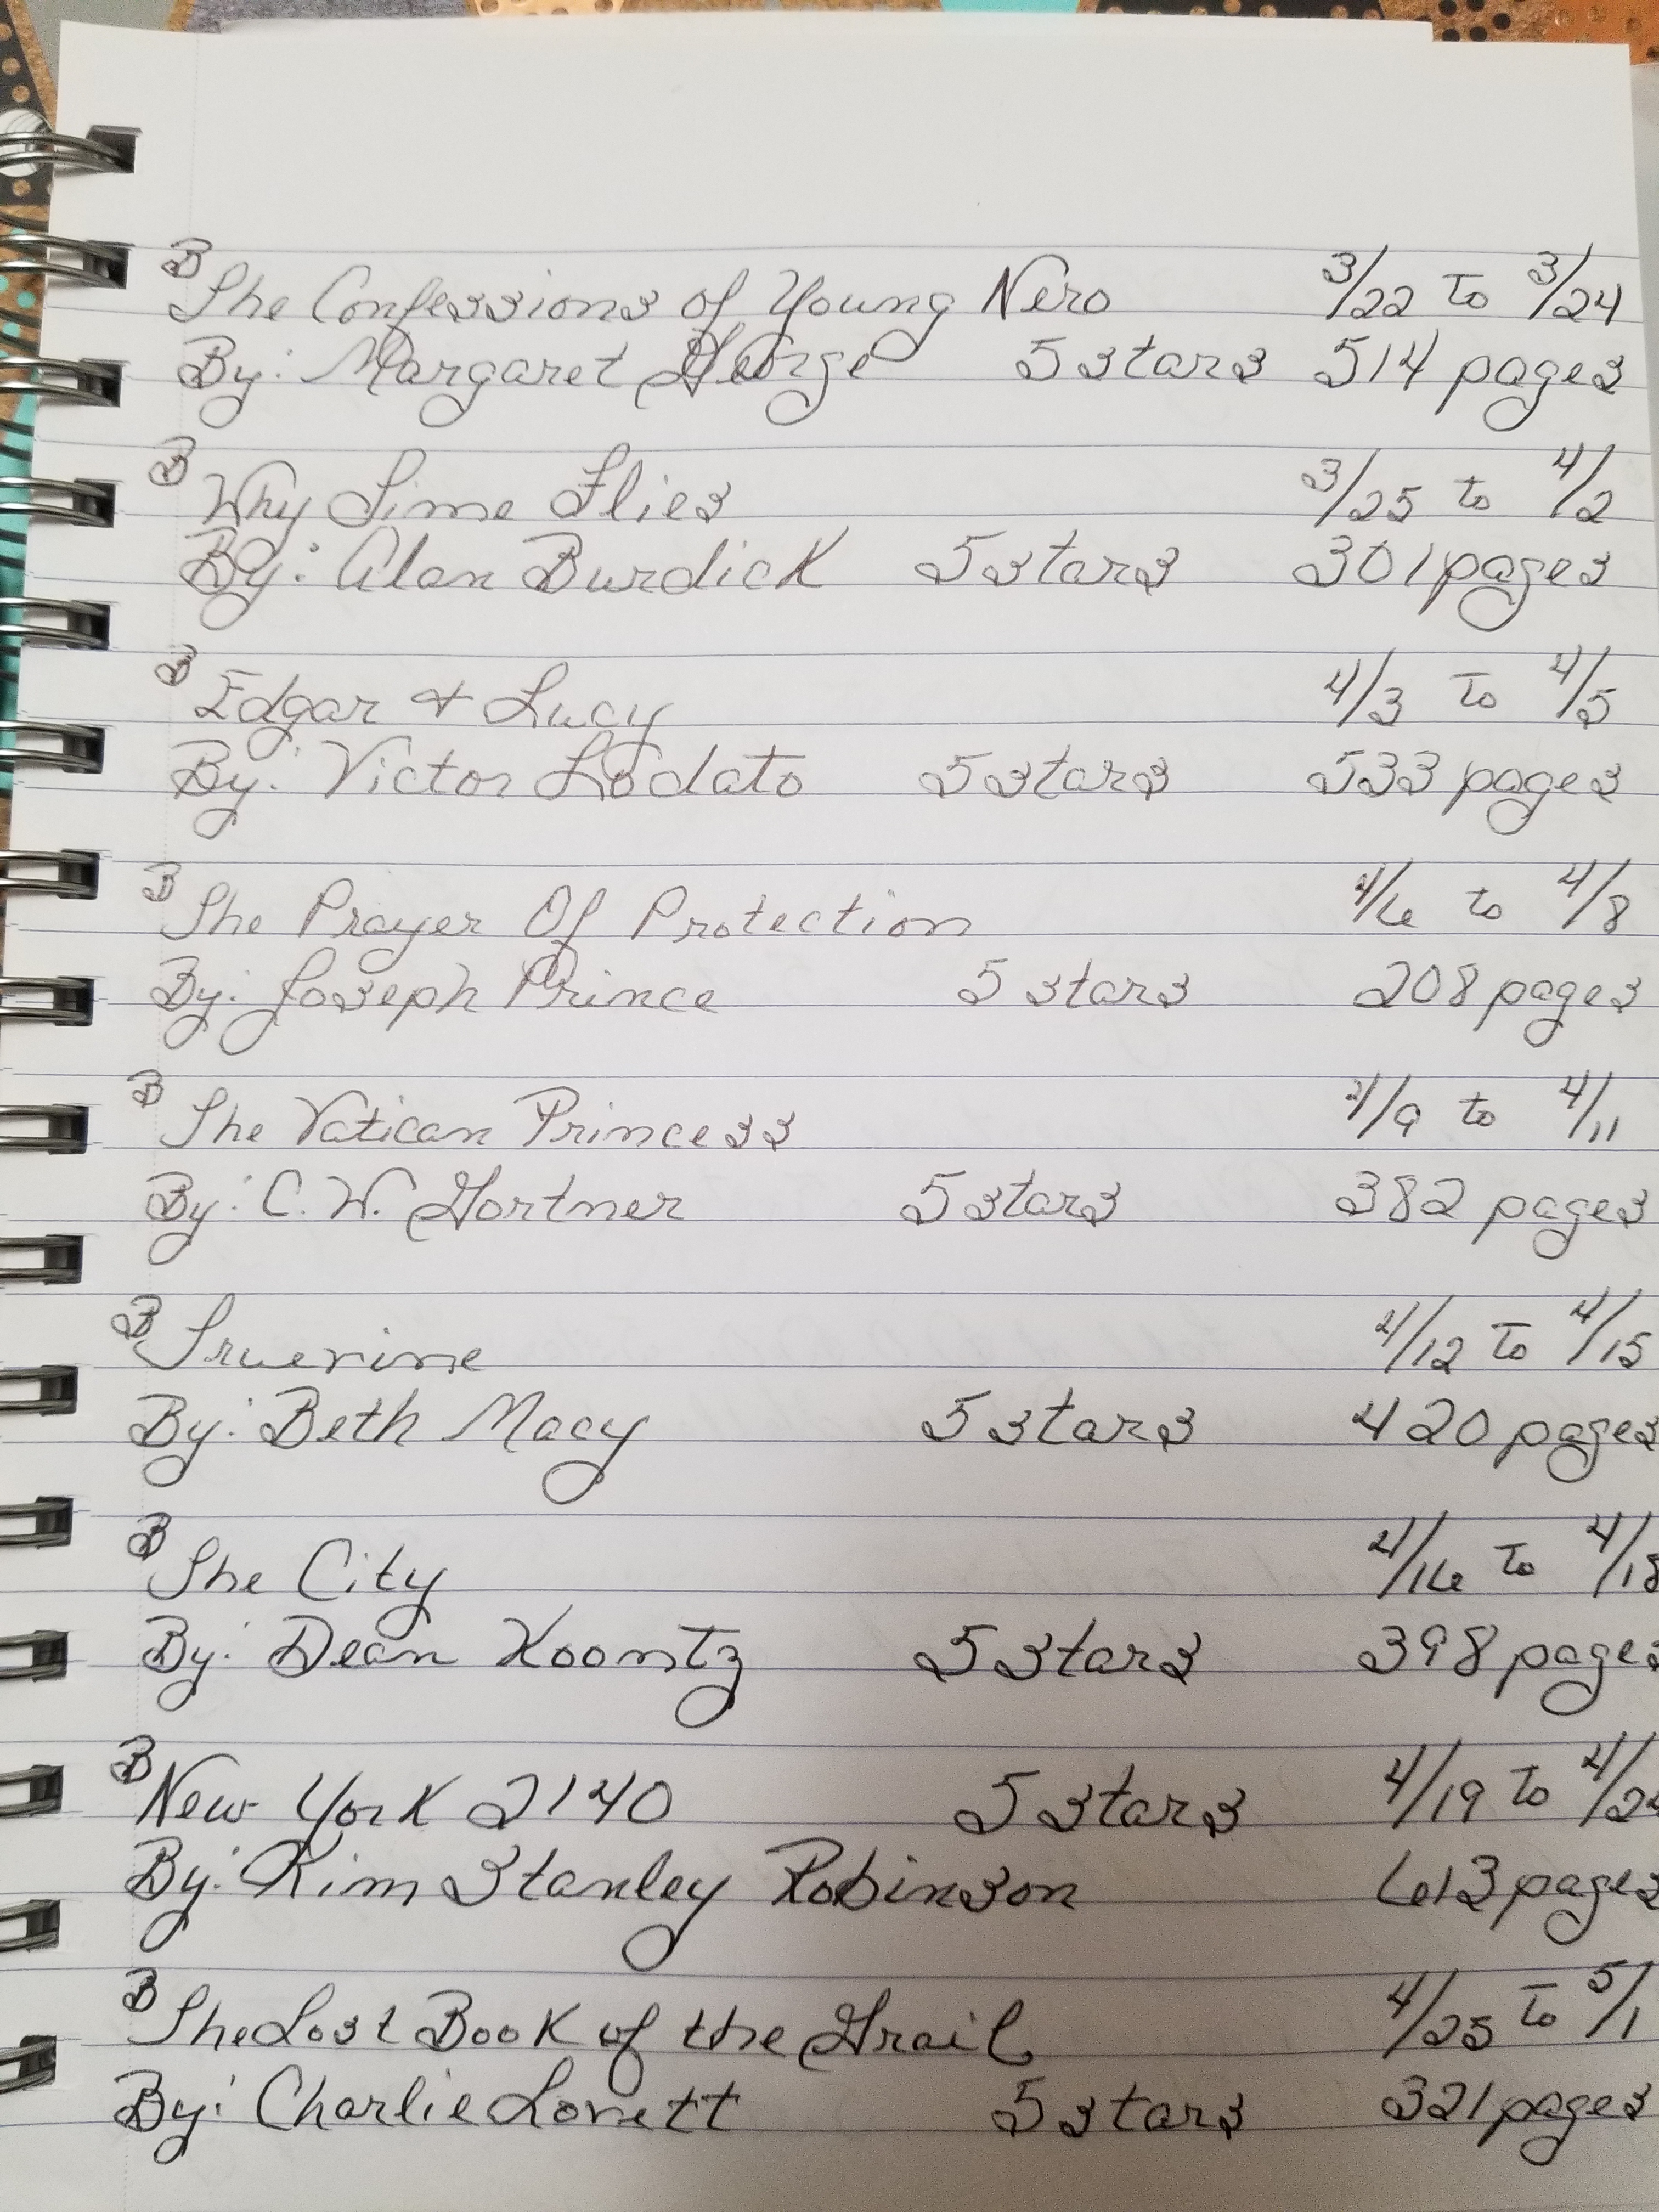 B
The Confessions of Young Nero 3/22 to 3/24
By: Margaret George 5 stars 514 pages
B
Why Time Flies 3/25 to 4/2
By: Alan Burdick 5 stars 301 pages
B
Edgar + Lucy 4/3 to 4/5
By: Victor Lodato 5 stars 533 pages
B
The Prayer Of Protection 4/6 to 4/8
By: Joseph Prince 5 stars 208 pages
B
The Vatican Princess 4/9 to 4/11
By: C. W. Gortner 5 stars 382 pages
B
Truevine 4/12 to 4/15
By: Beth Macy 5 stars 420 pages
B
The City 4/16 to 4/18
By: Dean Koontz 5 stars 398 pages
B
New York 2140 5 stars 4/19 to 4/24
By: Kim Stanley Robinson 613 pages
B
The Lost Book of the Grail 4/25 to 5/1
By: Charlie Lovett 5 stars 321 pages